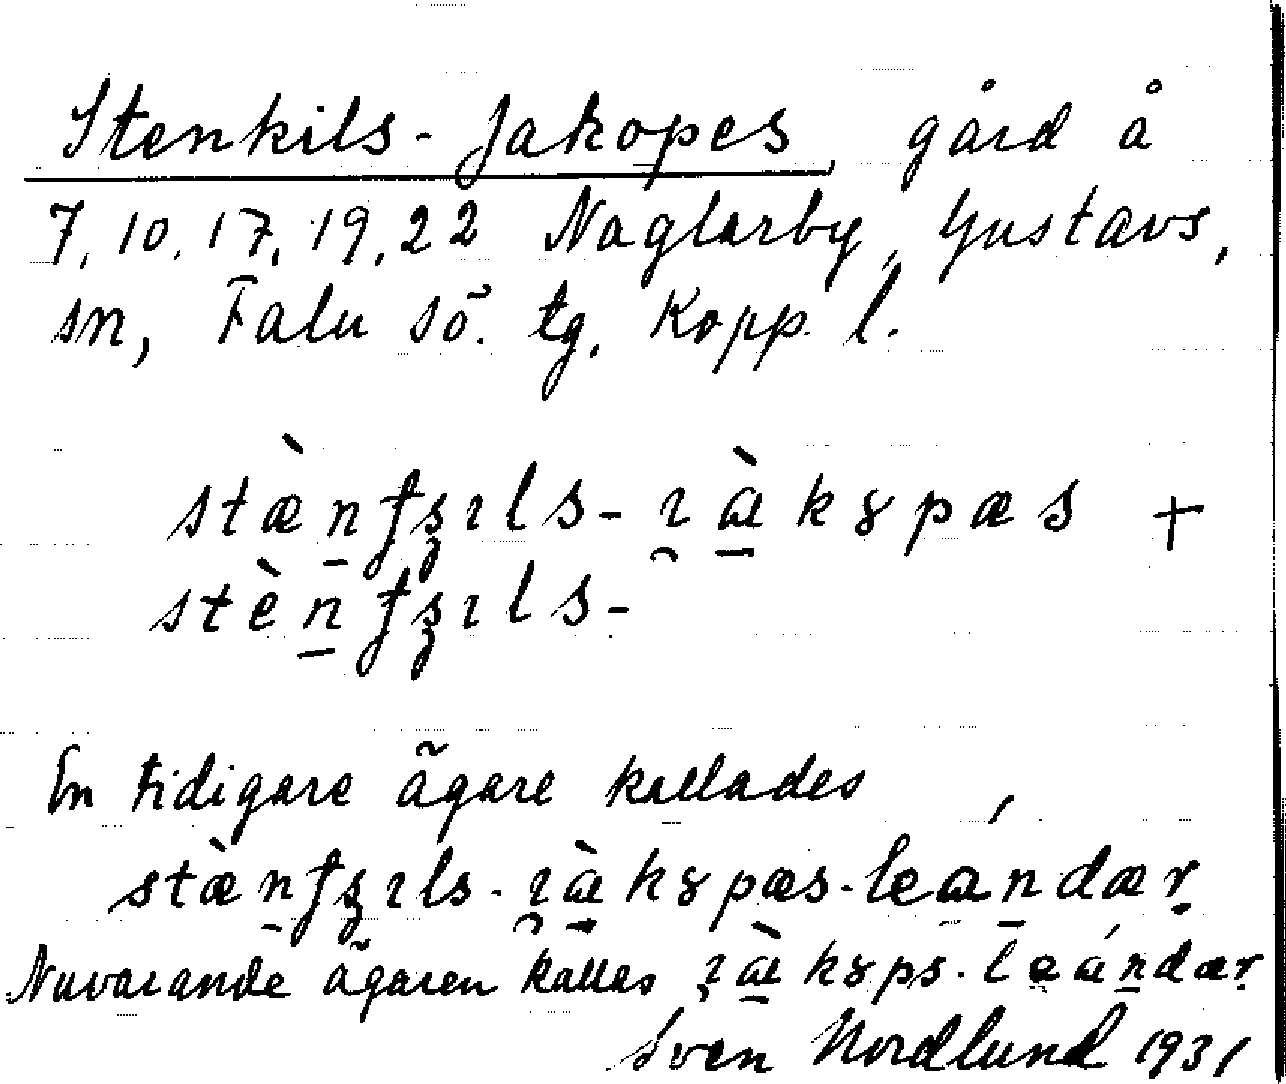 Stenkils-Jakopes, gård å
7, 10, 17, 19, 22 Naglarby, Gustavs,
sn, Falu sö. tg, Kopp. l.
stæ̀n̠ꞙʂıls-ı̯àkȣpæs +
stèn̠ꞙʂıls-
En tidigare ägare kallades
stæ̀n̠ꞙʂıls-ı̯àkȣpæs-leán̠dær̤
Nuvarande ägaren kallas ı̯àkȣps-leán̠dær̤
Sven Nordlund 1931